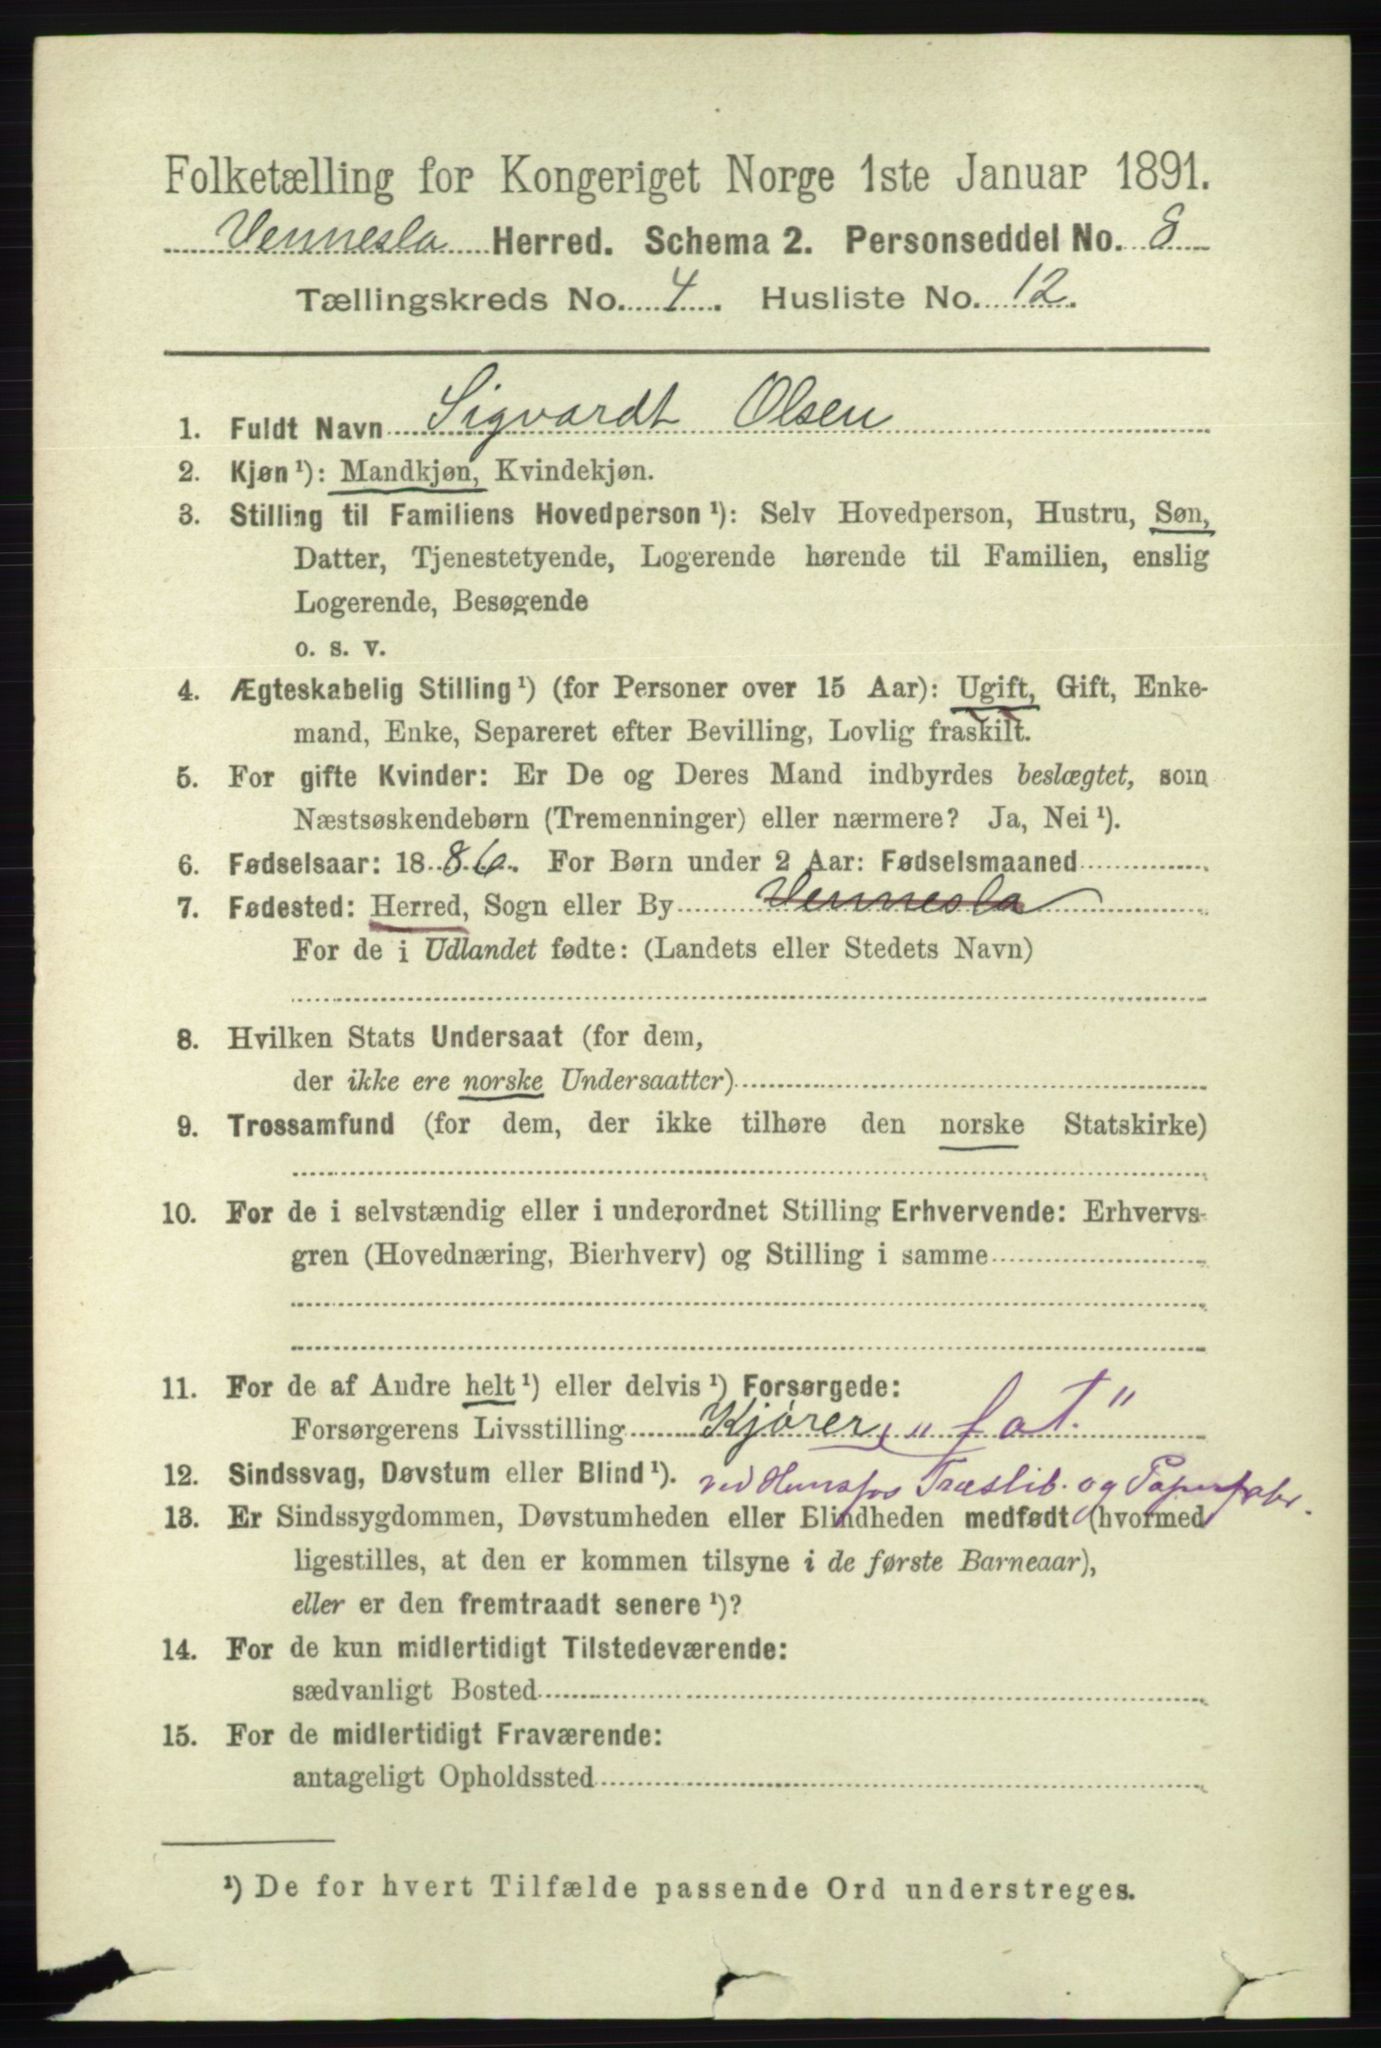 Folketælling for Kongeriget Norge 1ste Januar 1891.
Vennesla Herred. Schema 2. Personseddel No. 8
Tællingskreds No. 4. Husliste No. 12.
1. Fuldt Navn Sigvardt Olsen
2. Kjøn¹): Mandkjøn, Kvindekjøn.
3. Stilling til Familiens Hovedperson¹): Selv Hovedperson, Hustru, Søn,
Datter, Tjenestetyende, Logerende hørende til Familien, enslig
Logerende, Besøgende
o. s. v.
4. Ægteskabelig Stilling¹) (for Personer over 15 Aar): Ugift, Gift, Enke-
mand, Enke, Separeret efter Bevilling, Lovlig fraskilt.
5. For gifte Kvinder: Er De og Deres Mand indbyrdes beslægtet, som
Næstsøskendebørn (Tremenninger) eller nærmere? Ja, Nei¹).
6. Fødselsaar: 1886. For Børn under 2 Aar: Fødselsmaaned
7. Fødested: Herred, Sogn eller By Vennesla
For de i Udlandet fødte: (Landets eller Stedets Navn)
8. Hvilken Stats Undersaat (for dem,
der ikke ere norske Undersaatter)
9. Trossamfund (for dem, der ikke tilhøre den norske Statskirke)
10. For de i selvstændig eller i underordnet Stilling Erhvervende: Erhvervs-
gren (Hovednæring, Bierhverv) og Stilling i samme
11. For de af Andre helt¹) eller delvis¹) Forsørgede:
Forsørgerens Livsstilling Kjører, „fat.“
12. Sindssvag, Døvstum eller Blind¹). ved Hunsfos Træslib. og Papirfabr.
13. Er Sindssygdommen, Døvstumheden eller Blindheden medfødt (hvormed
ligestilles, at den er kommen tilsyne i de første Barneaar),
eller er den fremtraadt senere¹)?
14. For de kun midlertidigt Tilstedeværende:
sædvanligt Bosted
15. For de midlertidigt Fraværende:
antageligt Opholdssted
¹) De for hvert Tilfælde passende Ord understreges.